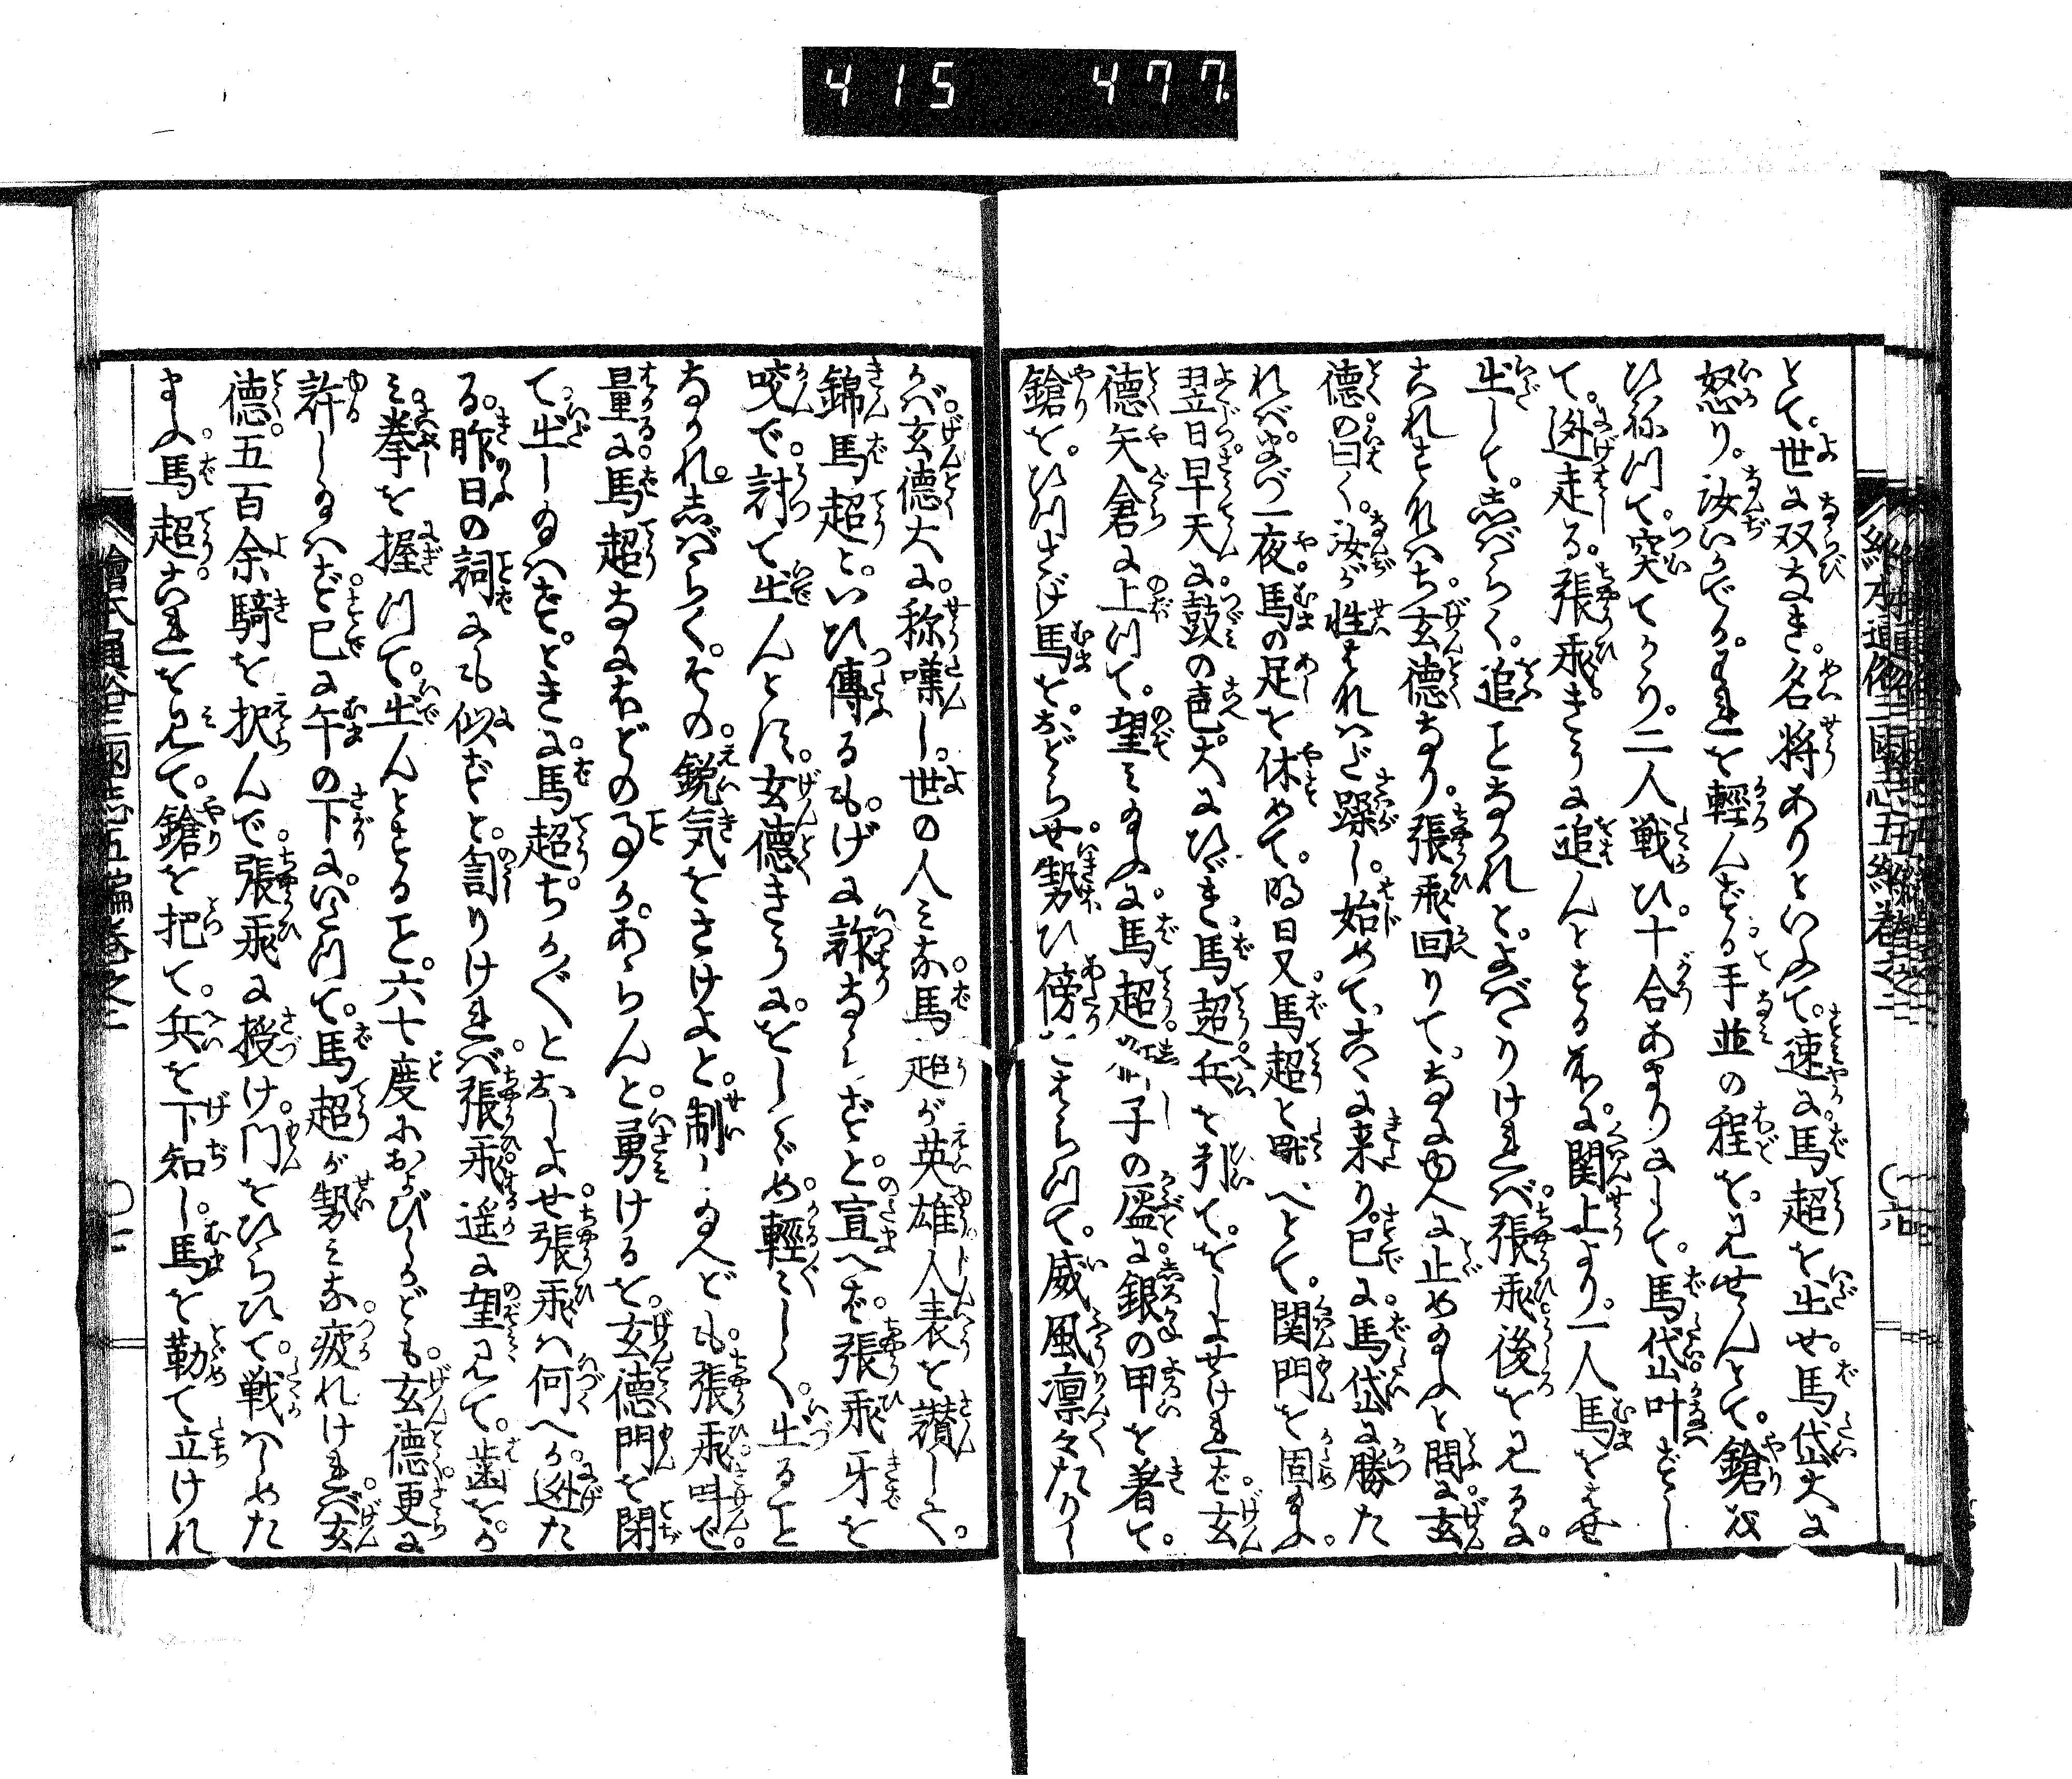 415 477.
繪本通俗三國志五編巻之二
とて。世に双なき。名将ありといふて。速に馬超を出せ。馬岱大に
怒り。汝いかでか。われを輕んずる手並の程を。見せんとて。鎗を
ひねつて。突てかゝり。二人戦ひ。十合あまりにして。馬岱叶ずし
て。迯走る。張飛きうに追んとする所に。関上より。一人馬をはせ
出して。しばらく。追ことなかれと。よばゝりければ張飛後を見るに。
これすなはち玄徳なり。張飛回りて。なにゆへに止め玉ふと問に玄
徳の曰く。汝が性それはだ躁し。始めて。こゝに来り。已に。馬岱に勝た
れば。まづ一夜。馬の足を休めて。明日又馬超と戦へとて。関門を固玉ふ。
翌日早天に鼓の声大にひゞき馬超兵を引て。をしよせければ玄
徳矢倉に上つて。望み玉ふに。馬超 獅子の盔に銀の甲を着て。
鎗を。ひつさげ馬を。おどらせ勢ひ傍をはらつて。威風凛々たりし
かば玄徳大に。称嘆し。世の人みな馬超が英雄人表を讃して。
錦馬超と。いひ傳るも。げに詐ならずと宣へば。張飛牙を
咬で。討て出んとす。玄徳きうに。をしとゞめ輕〻しく。出ること
なかれ。しばらく。その。鋭気をさけよと。制し玉へども。張飛叫で
量に馬超なにほどの事かあらんと。勇けるを。玄徳門を閉
て出し玉はず。ときに馬超ちかぐとおしよせ張飛は何へか。迯た
る。昨日の詞にも似ずと。詈りければ。張飛遥に望見て。歯をか
み拳を握つて。出んとすること。六七度におよびしかども。玄徳更に
許し玉はず已に午の下にいたつて。馬超が勢みな疲れければ玄
徳。五百余騎を択んで張飛に授け。門をひらひて。戦はしめた
まふ。馬超。これを見て。鎗を把て。兵を下知し。馬を勒て立けれ
繪本通俗三國志五編巻之二